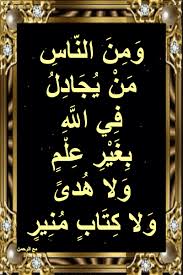 وَمِنَ النَّاسِ
مَنْ يُجَادِلُ
فِي اللَّهِ
بِغَيْرِ عِلْمٍ
وَلَا هُدًى
وَلَا كِتَابٍ مُنِيرٍ
مع الرحمن